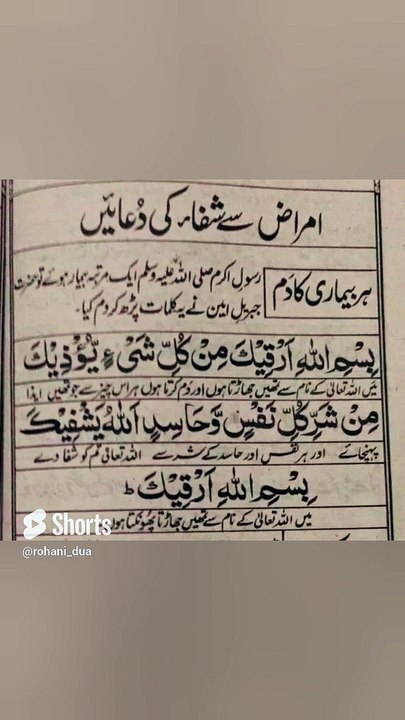 امراض سے شفاء کی دعائیں
ہر بیماری کا دم
رسول اکرم صلی اللہ علیہ وسلم ایک مرتبہ بیمار ہوئے تو حضرت
جبریل امین نے یہ کلمات پڑھ کر دم کیا۔
بِسْمِ اللهِ اَرْقِيْكَ مِنْ كُلِّ شَیْءٍ يُّؤْذِيْكَ
میں اللہ تعالیٰ کے نام سے تمھیں جھاڑتا ہوں اور دَم کرتا ہوں ہر اس چیز سے جو تمھیں ایذا
مِنْ شَرِّ كُلِّ نَفْسٍ وَّحَاسِدٍ اَللهُ يَشْفِيْكَ
پہنچائے اور ہر نفس اور حاسد کے شر سے اللہ تعالیٰ تم کو شفا دے
بِسْمِ اللهِ اَرْقِيْكَ ط
میں اللہ تعالیٰ کے نام سے تمھیں جھاڑتا پھونکتا ہوں
Shorts
@rohani_dua